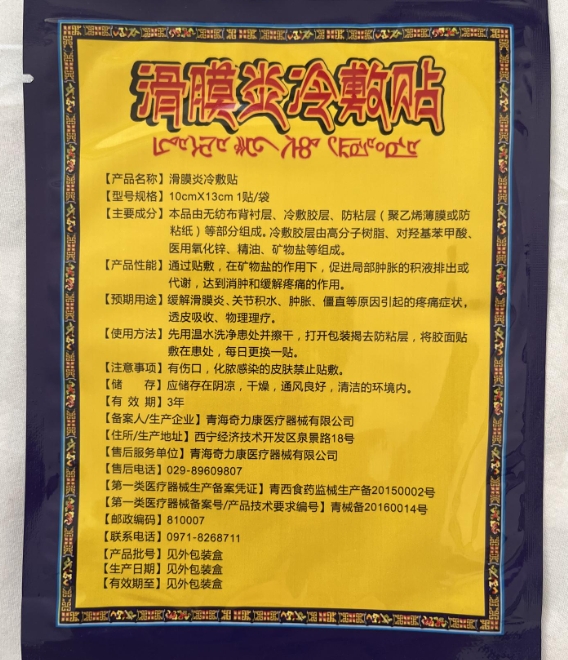 滑膜炎冷敷贴
【产品名称】滑膜炎冷敷贴
【型号规格】10cmX13cm 1贴/袋
【主要成分】本品由无纺布背衬层、冷敷胶层、防粘层（聚乙烯薄膜或防
粘纸）等部分组成。冷敷胶层由高分子树脂、对羟基苯甲酸、
医用氧化锌、精油、矿物盐等组成。
【产品性能】通过贴敷，在矿物盐的作用下，促进局部肿胀的积液排出或
代谢，达到消肿和缓解疼痛的作用。
【预期用途】缓解滑膜炎、关节积水、肿胀、僵直等原因引起的疼痛症状，
透皮吸收、物理理疗。
【使用方法】先用温水洗净患处并擦干，打开包装揭去防粘层，将胶面贴
敷在患处，每日更换一贴。
【注意事项】有伤口，化脓感染的皮肤禁止贴敷。
【储 存】应储存在阴凉，干燥，通风良好，清洁的环境内。
【有 效 期】3年
【备案人/生产企业】青海奇力康医疗器械有限公司
【住所/生产地址】西宁经济技术开发区泉景路18号
【售后服务单位】青海奇力康医疗器械有限公司
【售后电话】029-89609807
【第一类医疗器械生产备案凭证】青西食药监械生产备20150002号
【第一类医疗器械备案号/产品技术要求编号】青械备20160014号
【邮政编码】810007
【联系电话】0971-8268711
【产品批号】见外包装盒
【生产日期】见外包装盒
【有效期至】见外包装盒